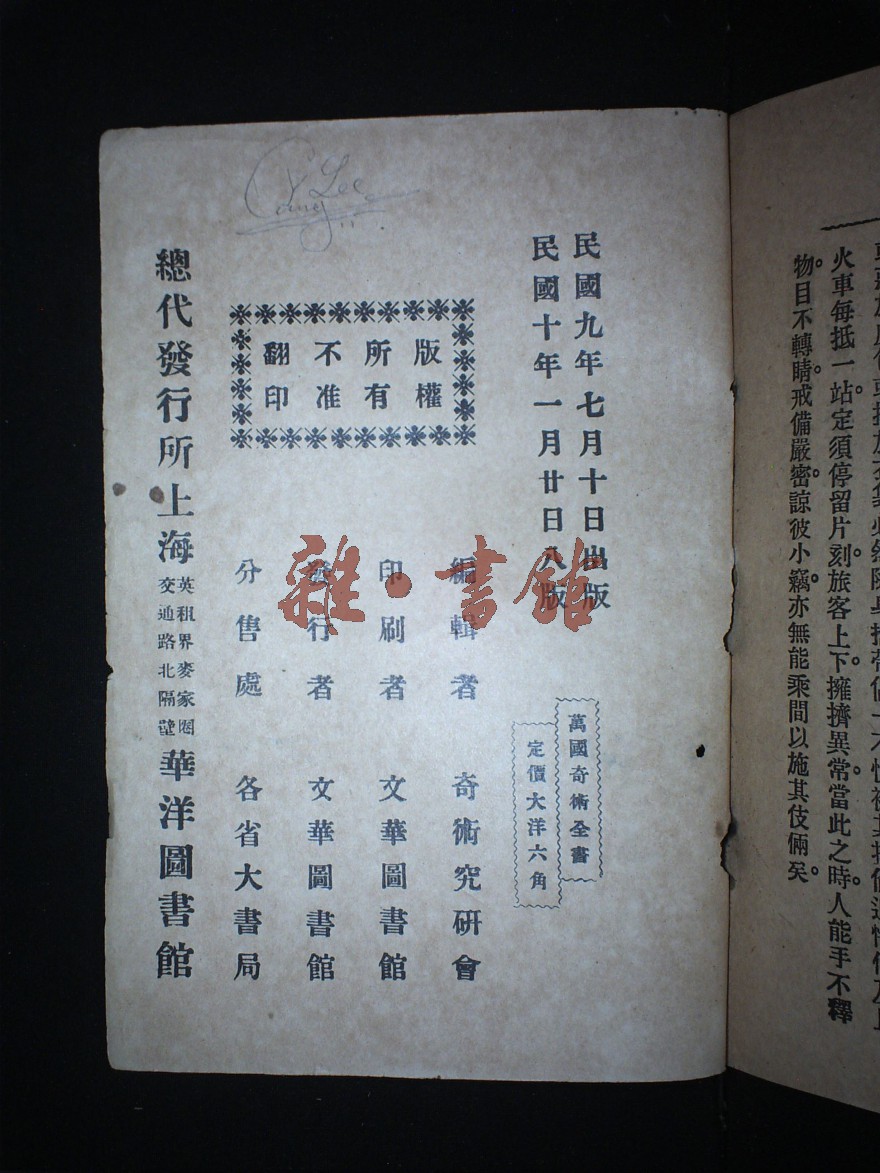 火車每抵一站。定須停留片刻。旅客上下。擁擠異常。當此之時。人能手不釋
物。目不轉睛。戒備嚴密。諒彼小竊。亦無能乘間以施其伎倆矣。
民國九年七月十日出版
民國十年一月廿日八版
萬國奇術全書
定價大洋六角
版權
所有
不准
翻印
編輯者 奇術究研會
印刷者 文華圖書館
發行者 文華圖書館
分售處 各省大書局
總代發行所上海
英租界麥家圈
交通路北隔壁
華洋圖書館
Lee
雜·書館